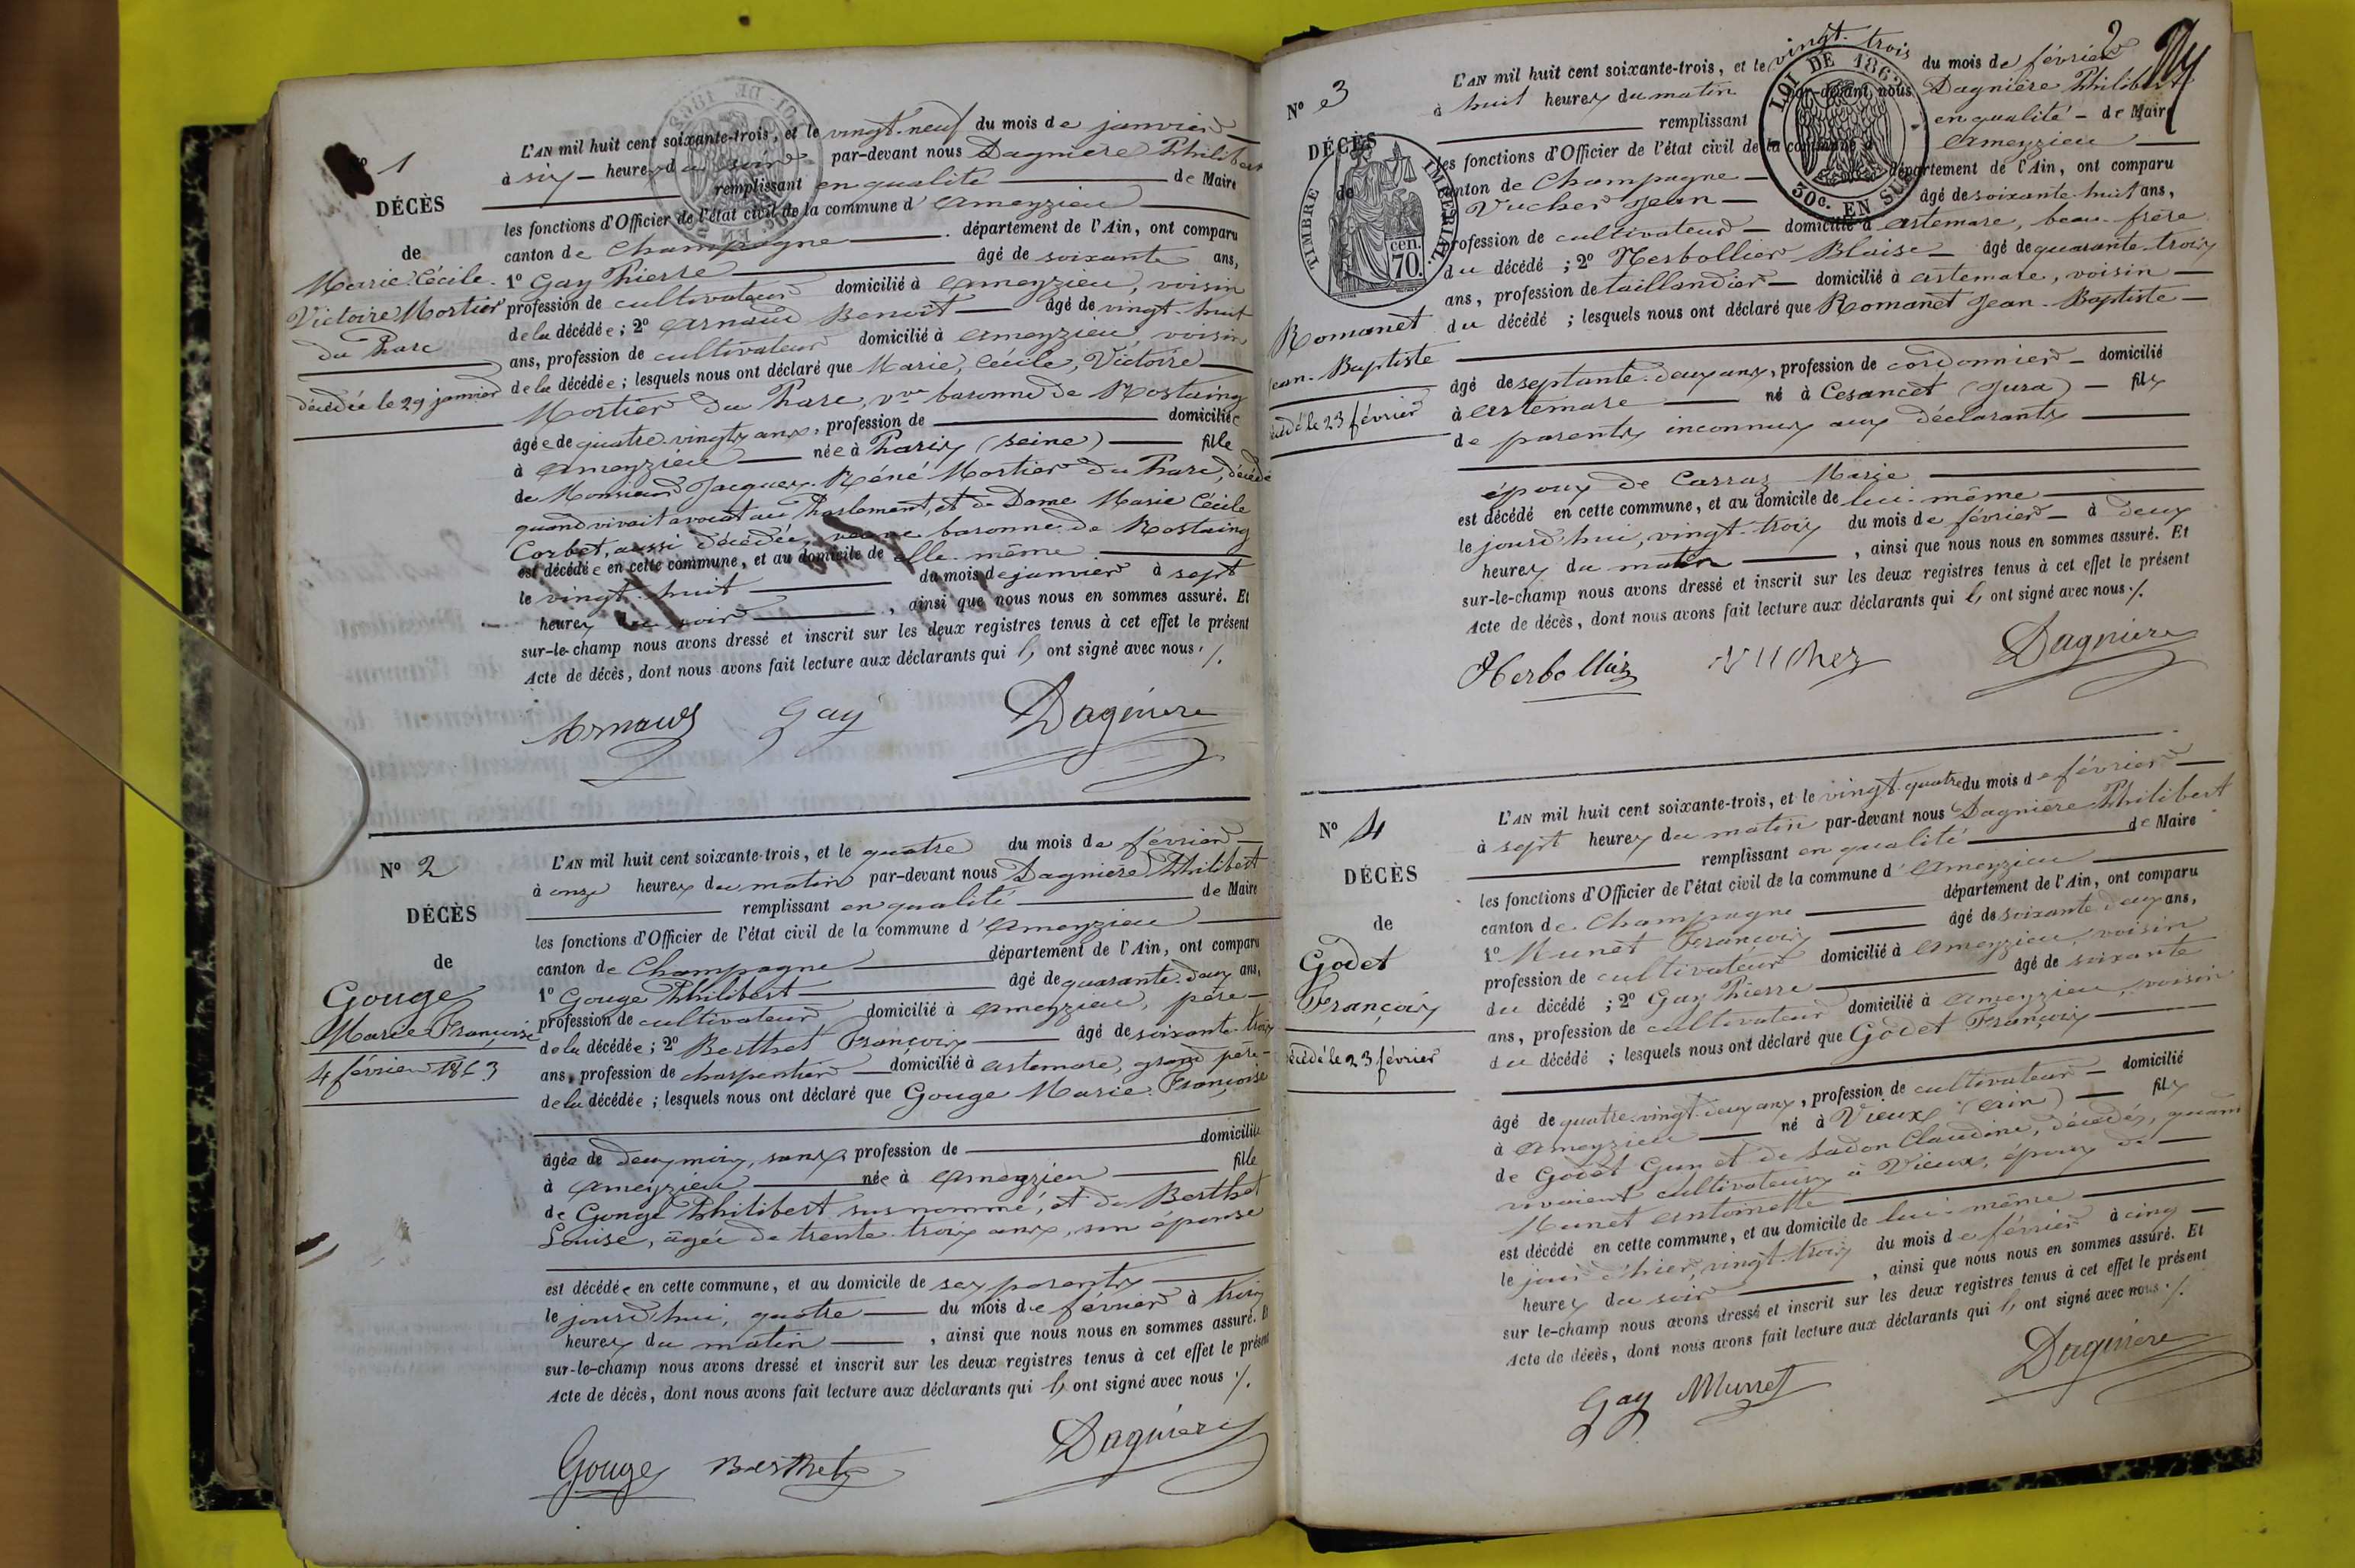 1
DÉCÈS
de
Marie Cécile
Victoire Mortier
du Parc
décédée le 29 janvier
L'AN mil huit cent soixante-trois, et le vingt-neuf du mois de janvier
à six heures du soir par-devant nous Dagnière Philibert
remplissant en qualité de Maire
les fonctions d'Officier de l'état civil de la commune d'Ameyzieu
canton de Champagne département de l'Ain, ont comparu
1º Gay Pierre âgé de soixante ans,
profession de cultivateur domicilié à Ameyzieu, voisin
de la décédée ; 2º Arnaud Benoit âgé de vingt-huit
ans, profession de cultivateur domicilié à Ameyzieu, voisin
de la décédée ; lesquels nous ont déclaré que Marie, Cécile, Victoire
Mortier du Parc, vve baronne de Rostaing
âgée de quatre-vingts ans, profession de domiciliée
à Ameyzieu née à Paris (Seine) fille
de Monsieur Jacques-Réné Mortier du Parc, décédé
quand vivait avocat au Parlement, et de Dame Marie Cécile
Corbet, aussi décédée, veuve baronne de Rostaing
est décédée en cette commune, et au domicile de elle-même
le vingt-huit du mois de janvier à sept
heures du soir, ainsi que nous nous en sommes assuré. Et
sur-le-champ nous avons dressé et inscrit sur les deux registres tenus à cet effet le présent
Acte de décès, dont nous avons fait lecture aux déclarants qui ont signé avec nous ./.
Arnaud Gay Dagnière
Nº 2
DÉCÈS
de
Gouge
Marie Françoise
4 février 1863
L'AN mil huit cent soixante-trois, et le quatre du mois de février
à onze heures du matin par-devant nous Dagnière Philibert
remplissant en qualité de Maire
les fonctions d'Officier de l'état civil de la commune d'Ameyzieu
canton de Champagne département de l'Ain, ont comparu
1º Gouge Philibert âgé de quarante-deux ans,
profession de cultivateur domicilié à Ameyzieu, père
de la décédée ; 2º Berthet François âgé de soixante-trois
ans, profession de charpentier domicilié à Artemare, grand père
de la décédée ; lesquels nous ont déclaré que Gouge Marie Françoise
âgée de deux mois, sans profession de domiciliée
à Ameyzieu née à Ameyzieu fille
de Gouge Philibert susnommé, et de Berthet
Louise, âgée de trente-trois ans, son épouse
est décédée en cette commune, et au domicile de ses parents
le jourd'hui, quatre du mois de février à trois
heures du matin, ainsi que nous nous en sommes assuré. Et
sur-le-champ nous avons dressé et inscrit sur les deux registres tenus à cet effet le présent
Acte de décès, dont nous avons fait lecture aux déclarants qui ont signé avec nous ./.
Gouge Berthet Dagnière
2
Nº 3
DÉCÈS
de
TIMBRE IMPÉRIAL
cen.
70.
LOI DE 1862
30c. EN SUS
Romanet
Jean-Baptiste
décédé le 23 février
L'AN mil huit cent soixante-trois, et le vingt-trois du mois de février
à huit heures du matin par-devant nous Dagnière Philibert
remplissant en qualité de Maire
les fonctions d'Officier de l'état civil de la commune d'Ameyzieu
canton de Champagne département de l'Ain, ont comparu
Vucher Jean âgé de soixante-huit ans,
profession de cultivateur domicilié à Artemare, beau-frère
du décédé ; 2º Herbollier Blaise âgé de quarante-trois
ans, profession de taillandier domicilié à Artemare, voisin
du décédé ; lesquels nous ont déclaré que Romanet Jean-Baptiste
âgé de septante-deux ans, profession de cordonnier domicilié
à Artemare né à Cesancet (Jura) fils
de parents inconnus aux déclarants
époux de Carraz Marie
est décédé en cette commune, et au domicile de lui-même
le jourd'hui, vingt-trois du mois de février à deux
heures du matin, ainsi que nous nous en sommes assuré. Et
sur-le-champ nous avons dressé et inscrit sur les deux registres tenus à cet effet le présent
Acte de décès, dont nous avons fait lecture aux déclarants qui ont signé avec nous ./.
Herbollier Vucher Dagnière
Nº 4
DÉCÈS
de
Godet
François
décédé le 23 février
L'AN mil huit cent soixante-trois, et le vingt-quatre du mois de février
à sept heures du matin par-devant nous Dagnière Philibert
remplissant en qualité de Maire
les fonctions d'Officier de l'état civil de la commune d'Ameyzieu
canton de Champagne département de l'Ain, ont comparu
1º Munet François âgé de soixante-deux ans,
profession de cultivateur domicilié à Ameyzieu, voisin
du décédé ; 2º Gay Pierre âgé de soixante
ans, profession de cultivateur domicilié à Ameyzieu, voisin
du décédé ; lesquels nous ont déclaré que Godet François
âgé de quatre-vingt-deux ans, profession de cultivateur domicilié
à Ameyzieu né à Vieux (Ain) fils
de Godet et de Claudine, décédés, quand
vivaient cultivateurs à Vieux, époux de
Munet Antoinette
est décédé en cette commune, et au domicile de lui-même
le jour d'hier, vingt-trois du mois de février à cinq
heures du soir, ainsi que nous nous en sommes assuré. Et
sur le-champ nous avons dressé et inscrit sur les deux registres tenus à cet effet le présent
Acte de décès, dont nous avons fait lecture aux déclarants qui ont signé avec nous ./.
Gay Munet Dagnière